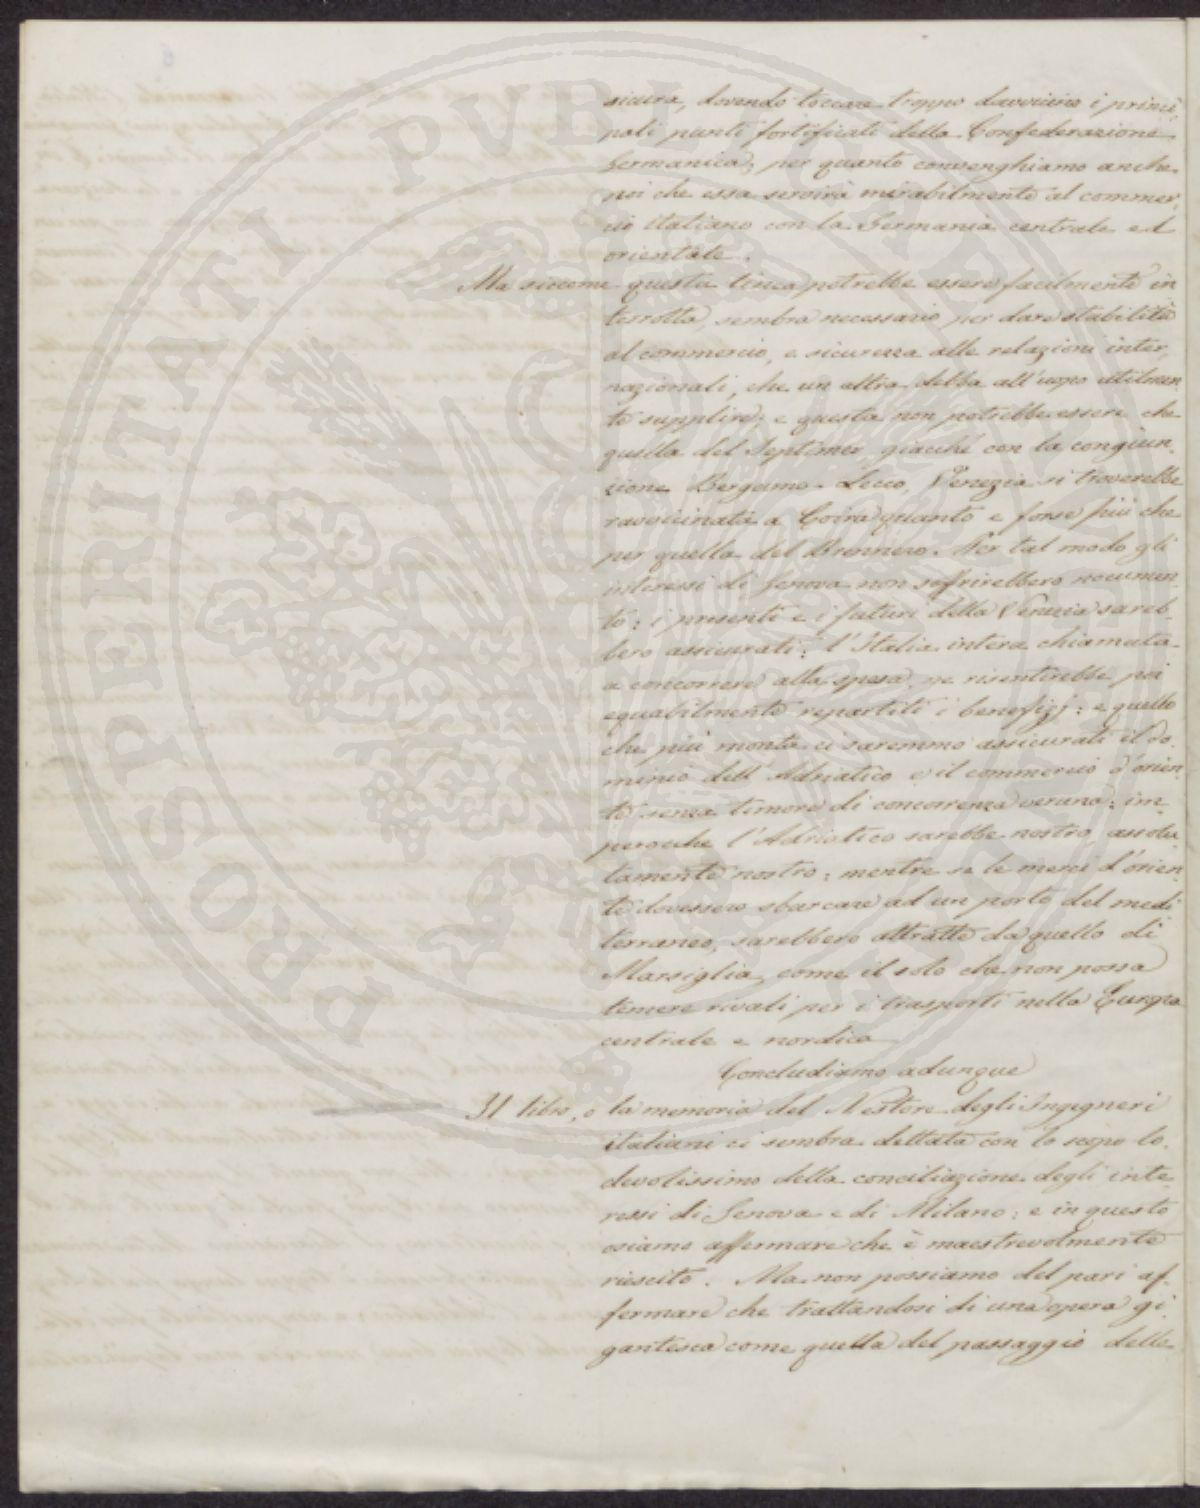 PROSPERITATI PVBLICAE
sicura, dovendo toccare troppo davvicino i princi
pali punti fortificati della Confederazione
Germanica; per quanto convenghiamo anche
noi che essa servirà mirabilmente al commer,
cio italiano con la Germania centrale ed
orientale.
Ma siccome questa linea potrebbe essere facilmente in
terrotta, sembra necessario per dare stabilità
al commercio, e sicurezza alle relazioni inter,
nazionali, che un altra debba all'uopo utilmen
te supplire; e questa non potrebbe essere che
quella del Septimer, giacché con la congiun,
zione Bergamo-Lecco, Venezia si troverebbe
ravvicinata a Coira quanto e forse più che
per quella del Brennero. Per tal modo gli
interessi di Genova non soffrirebbero nocumen
to: i presenti e i futuri della Venezia sareb,
bero assicurati: l'Italia intera chiamata
a concorrere alla spesa, ne risentirebbe poi
equabilmente repartiti i benefizj: e quello
che più monta ci saremmo assicurati il do,
minio dell'Adriatico e il commercio d'orien
te senza timore di concorrenza veruna: im,
perocche l'Adriatico sarebbe nostro, assolu
tamente nostro: mentre se le merci d'orien,
te dovessero sbarcare ad un porto del medi
terraneo, sarebbero attratte da quello di
Marsiglia, come il solo che non possa
temere rivali per i trasporti nella Europa
centrale e nordica
Concludiamo adunque
Il libro, o la memoria del Nestore degli Ingegneri
italiani ci sembra dettata con lo scopo lo,
devolissimo della conciliazione degli inte,
ressi di Genova e di Milano: e in questo
osiamo affermare che è maestrevolmente
riescito. Ma non possiamo del pari af,
fermare che trattandosi di una opera gi,
gantesca come quella del passaggio delle